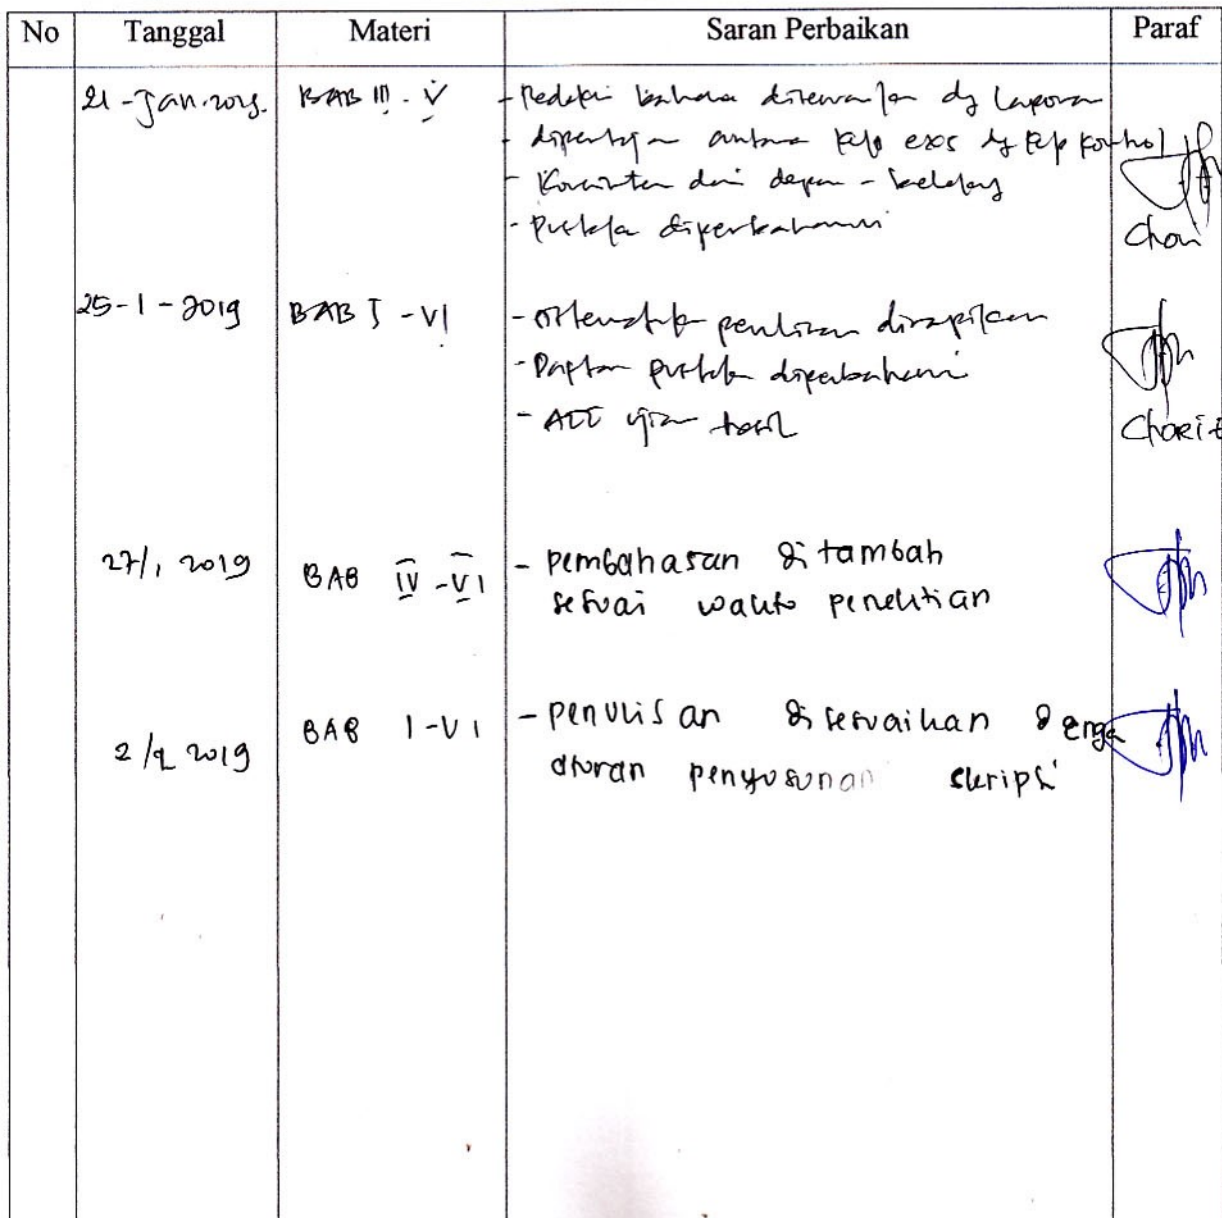 No Tanggal Materi Saran Perbaikan Paraf
21 - Jan. 2019. BAB III - V - Redaksi bahasa disesuaikan dg laporan
- antara kelp exs dg kelp kontrol
- Konsisten dari depan - belakang
- Pustaka diperbaharui
Chori
25 - 1 - 2019 BAB I - VI - Sistematika penulisan dirapikan
- Daftar pustaka diperbaharui
- ACC ujian hasil
Chorit
27/1 2019 BAB IV - VI - pembahasan ditambah
sesuai waktu penelitian
2/2 2019 BAB I - VI - penulisan disesuaikan denga
aturan penyusunan skripsi